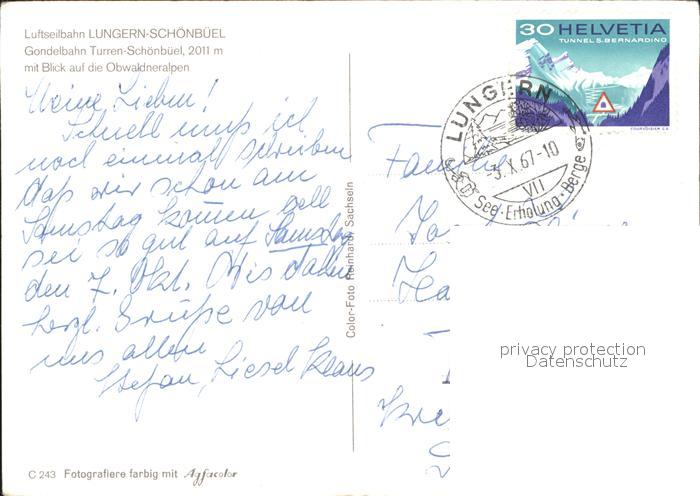 Luftseilbahn LUNGERN-SCHÖNBÜEL
Gondelbahn Turren-Schönbüel, 2011 m
mit Blick auf die Obwaldneralpen
Meine Lieben!
Schnell muß ich
noch einmal schreiben
daß wir schon am
Samstag kommen
sei so gut auf Samstag
den 7. Okt. Bis dahin
herzl. Grüße von
uns allen
Stefan, Liesel Klaus
C 243 Fotografiere farbig mit Agfacolor
Color-Foto Reinhard, Sachseln
30 HELVETIA
TUNNEL S. BERNARDINO
COURVOISIER S.A.
LUNGERN
-3.X.67-10
VII
See · Erholung · Berge
Familie
privacy protection
Datenschutz